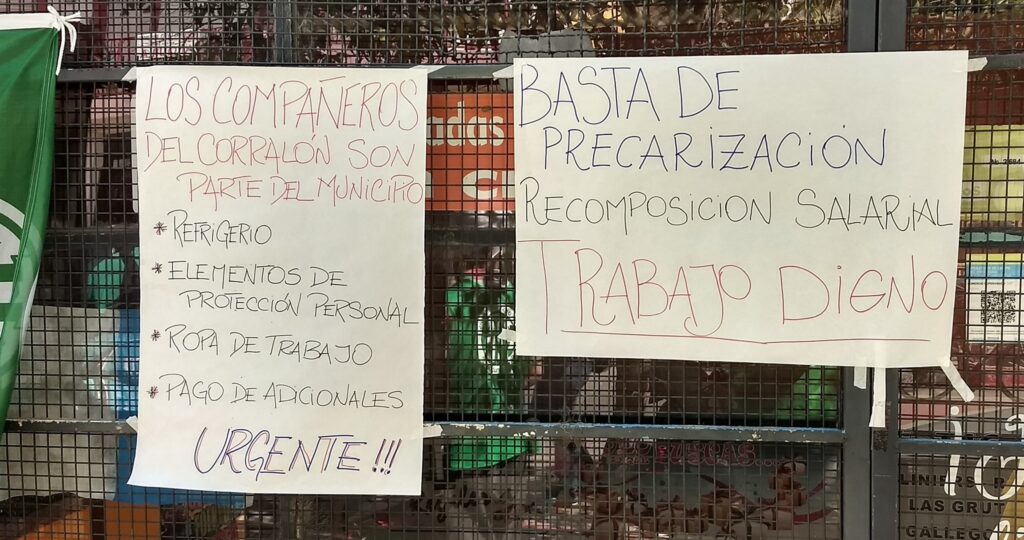 LOS COMPAÑEROS
DEL CORRALÓN SON
PARTE DEL MUNICIPIO
* REFRIGERIO
* ELEMENTOS DE
PROTECCIÓN PERSONAL
* ROPA DE TRABAJO
* PAGO DE ADICIONALES
URGENTE!!!
BASTA DE
PRECARIZACIÓN
RECOMPOSICION SALARIAL
TRABAJO DIGNO
LINIERS
LAS GRUT
GALLEGO